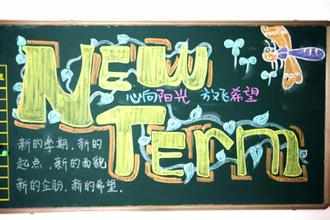 NEW
心向阳光 放飞希望
TERM
新的学期，新的
起点，新的面貌
新的企盼，新的希望。